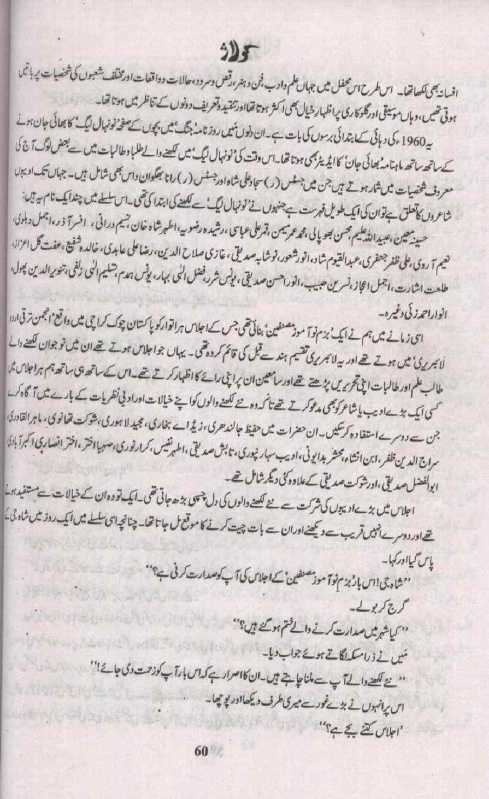 کولاژ
افسانہ بھی لکھا تھا۔ اس طرح اس محفل میں جہاں علم و ادب، فن و ہنر، رقص و سرود، حالات و واقعات اور مختلف شعبوں کی شخصیات پر باتیں
ہوتی تھیں، وہاں موسیقی اور گلوکاری پر اظہارِ خیال بھی اکثر ہوتا تھا اور تنقید و تعریف دونوں کے تناظر میں ہوتا تھا۔
یہ 1960ء کی دہائی کے ابتدائی برسوں کی بات ہے۔ ان دنوں میں روزنامہ 'جنگ' میں بچوں کے صفحہ 'نونہال لیگ' کا بھائی جان ہونے
کے ساتھ ساتھ ماہنامہ 'بھائی جان' کا ایڈیٹر بھی ہوتا تھا۔ اس وقت کی 'نونہال لیگ' میں لکھنے والے طلبا و طالبات میں سے بعض لوگ آج کی
معروف شخصیات میں شمار ہوتے ہیں جن میں جسٹس (ر) سجاد علی شاہ اور جسٹس (ر) رانا بھگوان داس بھی شامل ہیں۔ جہاں تک ادیبوں
شاعروں کا تعلق ہے تو ان کی ایک طویل فہرست ہے جنہوں نے 'نونہال لیگ' سے لکھنے کی ابتدا کی تھی۔ اس سلسلے میں چند ایک نام یہ ہیں:
حسینہ معین، عبید اللہ علیم، محسن بھوپالی، محمد عمر میمن، قمر علی عباسی، رشیدہ رضویہ، اطہر شاہ خان، نسیم درانی، افسر آذر، اجمل دہلوی،
نعیم آروی، علی ظفر جعفری، عبدالقیوم شاد، انور شعور، نوشابہ صدیقی، غازی صلاح الدین، رضا علی عابدی، خالدہ شفیع، عفت گل اعزاز،
طلعت اشارت، اجمل اعجاز، نسرین حبیب، انور احسن صدیقی، یونس شرر، فضل الٰہی بہار، یونس ہمدم، تسلیم الٰہی زلفی، تنویر الدین پھول،
انوار احمد زئی وغیرہ۔
اسی زمانے میں ہم نے ایک 'بزم نو آموز مصنفین' بنائی تھی جس کے اجلاس ہر اتوار کو پاکستان چوک کراچی میں واقع 'انجمن ترقی اردو
لائبریری' میں ہوتے تھے اور یہ لائبریری تقسیم ہند سے قبل کی قائم کردہ تھی۔ یہاں جو اجلاس ہوتے تھے ان میں نوجوان لکھنے والے
طالب علم اور طالبات اپنی تحریریں پڑھتے تھے اور سامعین ان پر اپنی رائے کا اظہار کرتے تھے۔ اس کے ساتھ ہی ساتھ ہم ہر اجلاس میں
کسی ایک بڑے ادیب یا شاعر کو بھی مدعو کرتے تھے تاکہ وہ نئے لکھنے والوں کو اپنے خیالات اور ادبی نظریات کے بارے میں آگاہ کرے
جن سے دوسرے استفادہ کر سکیں۔ ان حضرات میں حفیظ جالندھری، زیڈ اے بخاری، مجید لاہوری، شوکت تھانوی، ماہر القادری،
سراج الدین ظفر، ابن انشاء، محشر بدایونی، ادیب سہارنپوری، تابش صدیقی، اطہر نفیس، کرار نوری، صہبا اختر، اختر انصاری اکبرآبادی،
ابوالفضل صدیقی، اور شوکت صدیقی کے علاوہ کئی دیگر شامل تھے۔
اجلاس میں بڑے ادیبوں کی شرکت سے نئے لکھنے والوں کی دل چسپی بڑھ جاتی تھی۔ ایک تو وہ ان کے خیالات سے مستفید ہوتے
تھے اور دوسرے انہیں قریب سے دیکھنے اور ان سے بات چیت کرنے کا موقع مل جاتا تھا۔ چنانچہ اسی سلسلے میں ایک روز میں شاہ جی کے
پاس گیا اور کہا۔
"شاہ جی! اس بار 'بزم نو آموز مصنفین' کے اجلاس کی آپ کو صدارت کرنی ہے؟"
گرج کر بولے۔
"کیا شہر میں صدارت کرنے والے ختم ہو گئے ہیں؟"
میں نے ذرا مسکہ لگاتے ہوئے جواب دیا۔
"نئے لکھنے والے آپ سے ملنا چاہتے ہیں۔ ان کا اصرار ہے کہ اس بار آپ کو زحمت دی جائے!"
اس پر انہوں نے بڑے غور سے میری طرف دیکھا اور پوچھا۔
"اجلاس کتنے بجے ہے؟"
60